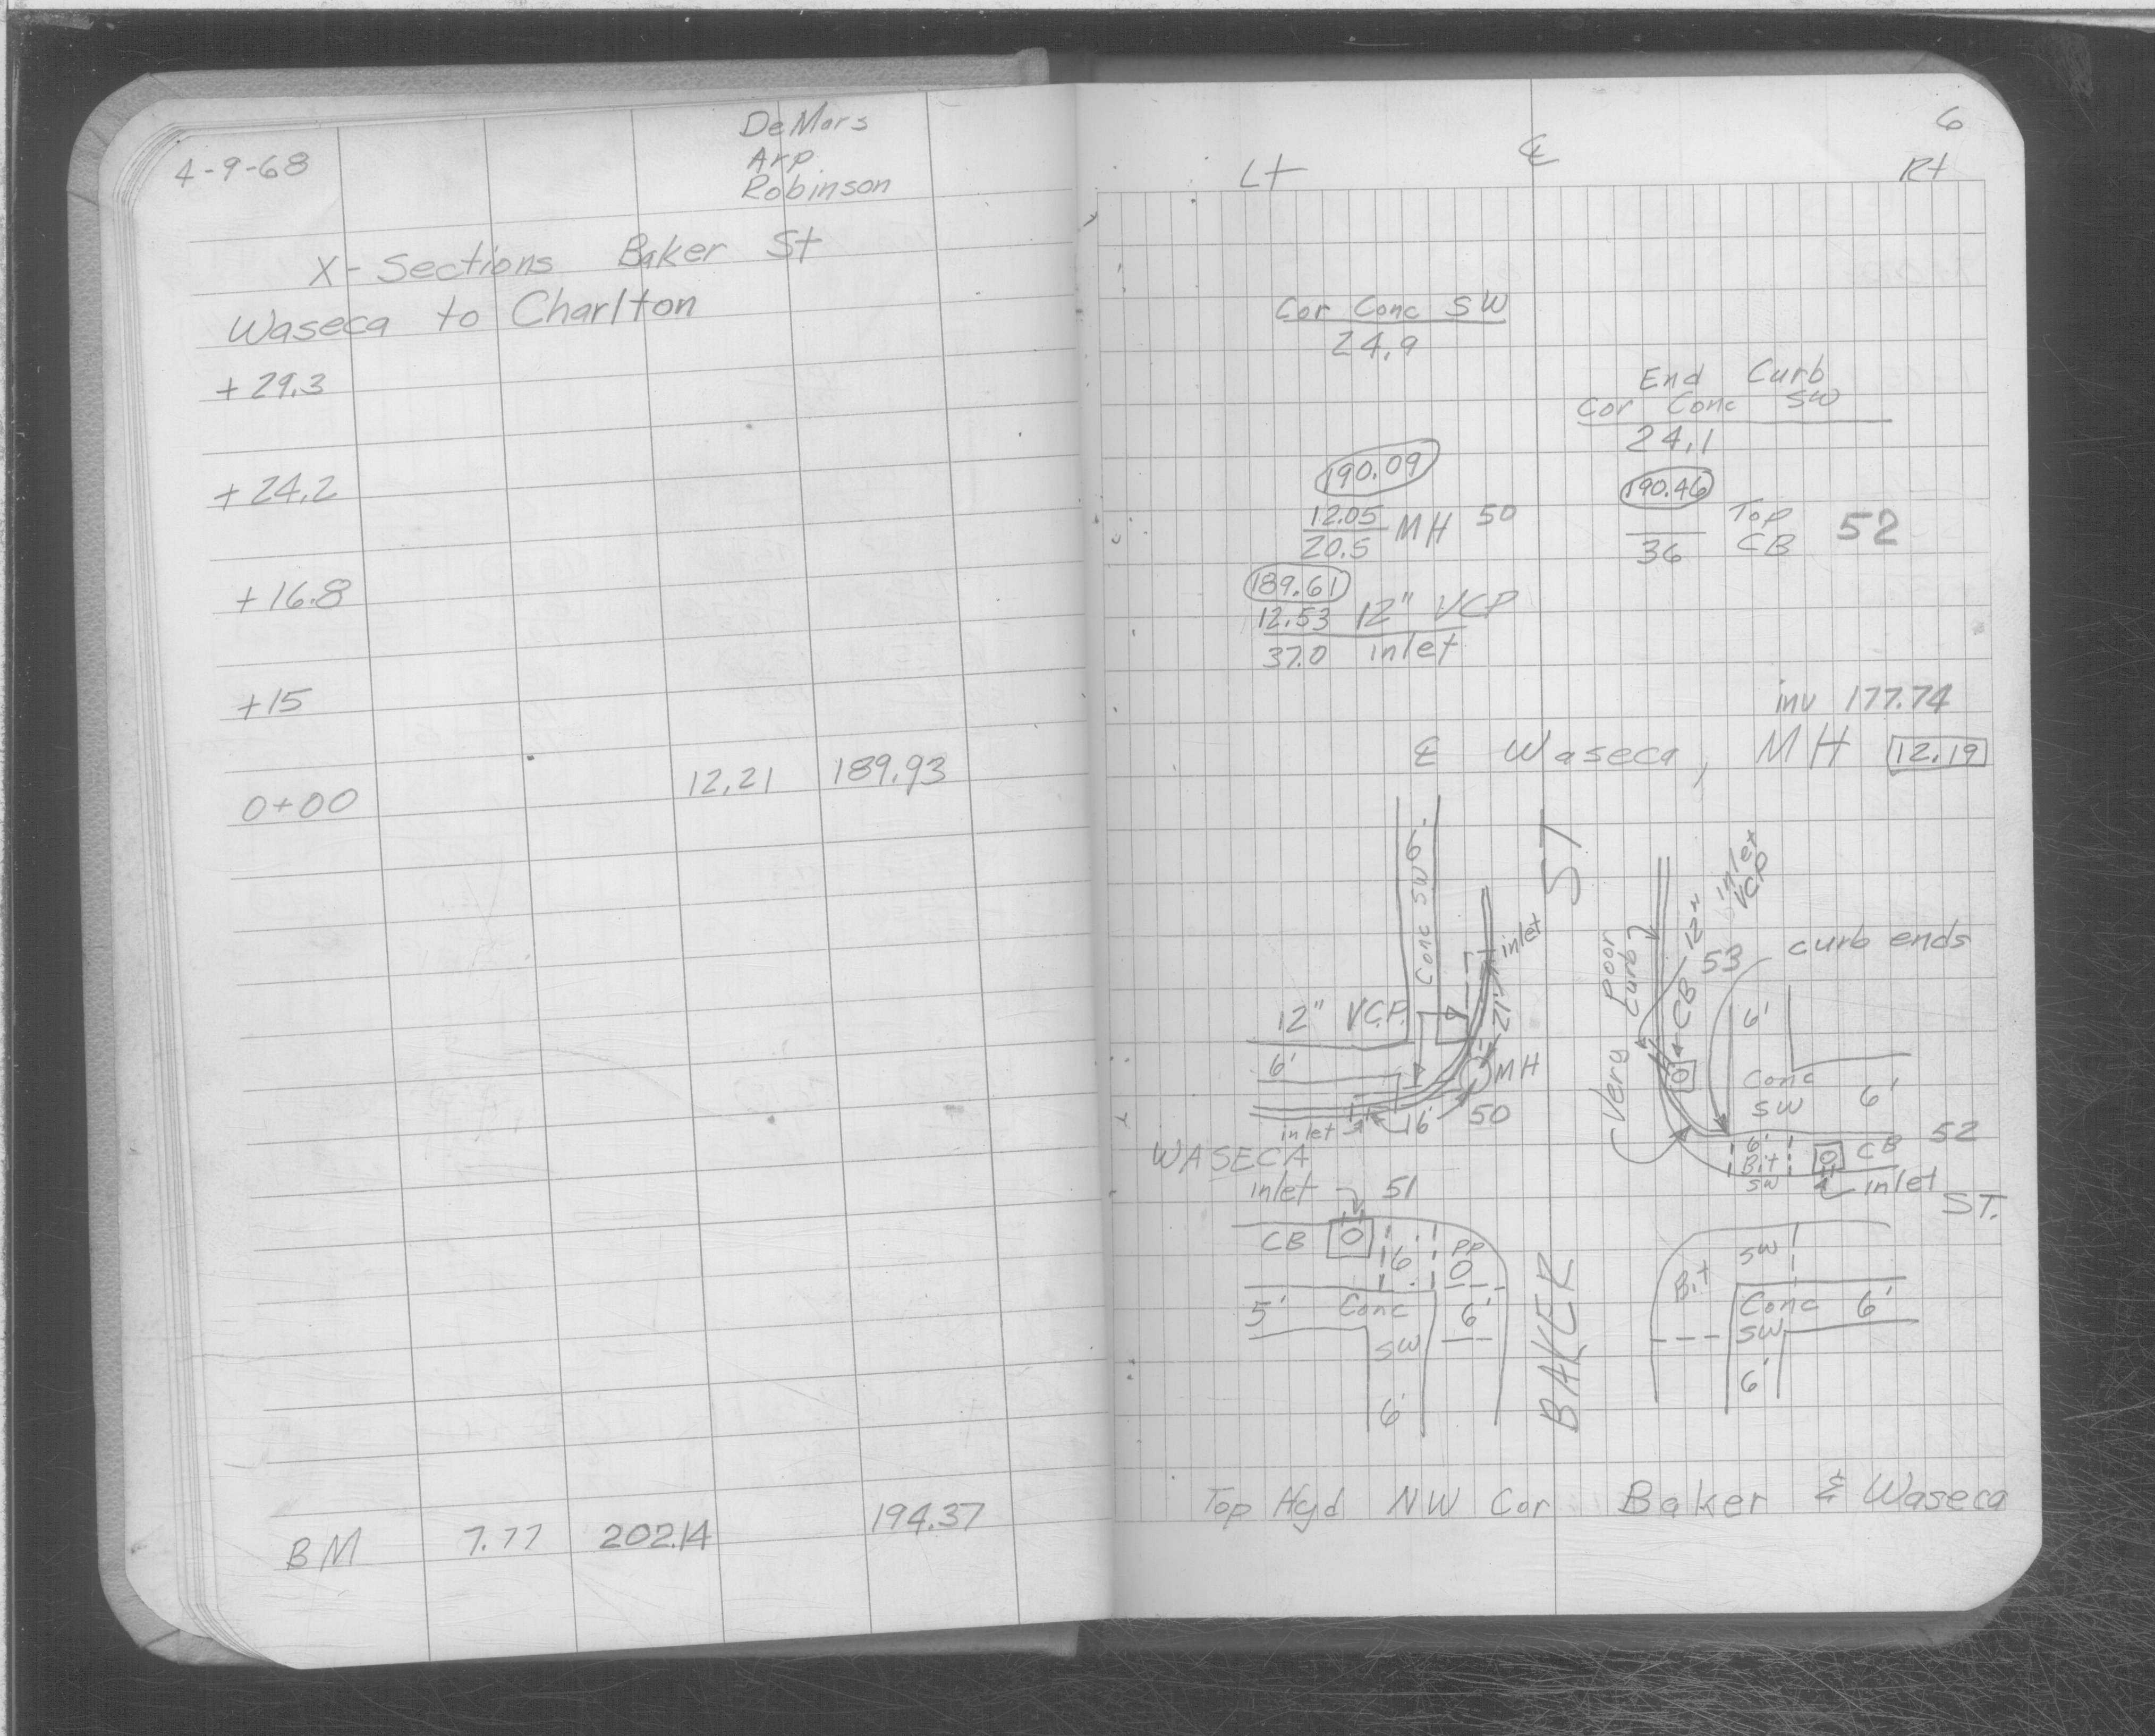 4-9-68
DeMars
Arp
Robinson
X-Sections Baker St
Waseca to Charlton
+29.3
+24.2
+16.8
+15
0+00 12.21 189.93
BM 7.77 202.14 194.37
6
Lt ℄ Rt
Cor Conc SW
24.9
End Curb
Cor Conc SW
24.1
190.09
12.05 MH 50
20.5
190.46
Top
36 CB 52
189.61
12.53 12" VCP
37.0 inlet
inv 177.74
℄ Waseca, MH 12.19
ST
6'
Conc SW
inlet
21'
12" V.C.P.
6'
MH
50
16'
inlet
WASECA
Very Poor
Curb
12"
inlet
VCP
53
CB
curb ends
6'
Conc
SW 6'
6'
Bit
SW
CB 52
inlet
ST.
inlet 51
CB 6' PP
5' Conc 6'
SW
6'
BAKER
Bit SW
Conc 6'
SW
6'
Top Hyd NW Cor Baker & Waseca